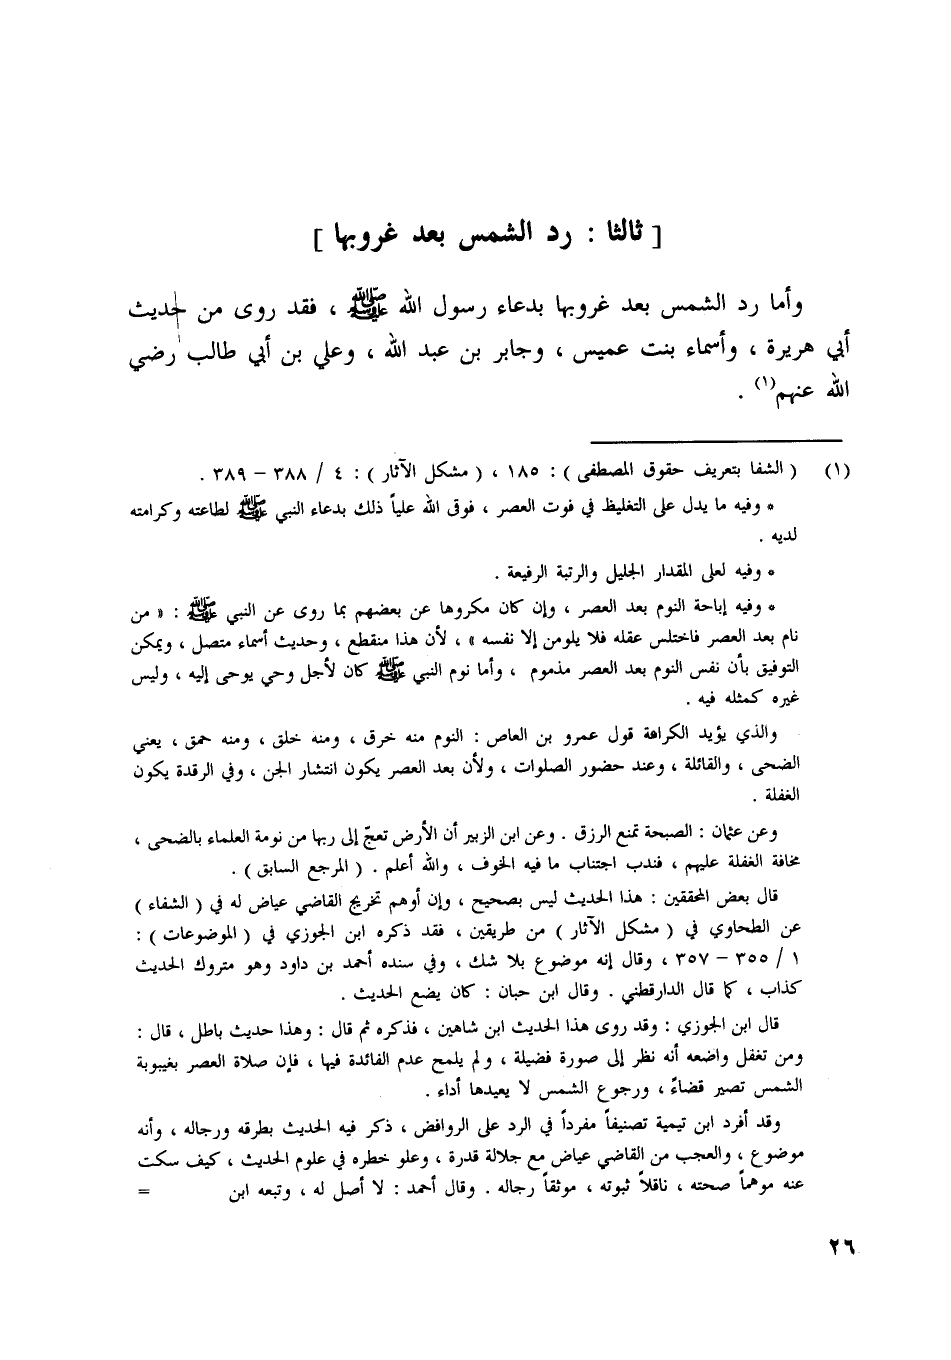 [ ثالثا : رد الشمس بعد غروبها ]
وأما رد الشمس بعد غروبها بدعاء رسول الله ﷺ ، فقد روى من حديث
أبي هريرة ، وأسماء بنت عميس ، وجابر بن عبد الله ، وعلي بن أبي طالب رضي
الله عنهم(١) .
(١) ( الشفا بتعريف حقوق المصطفى ) : ١٨٥ ، ( مشكل الآثار ) : ٤ / ٣٨٨ – ٣٨٩ .
* وفيه ما يدل على التغليظ في فوت العصر ، فوقى الله علياً ذلك بدعاء النبي ﷺ لطاعته وكرامته
لديه .
* وفيه لعلى المقدار الجليل والرتبة الرفيعة .
* وفيه إباحة النوم بعد العصر ، وإن كان مكروها عن بعضهم بما روى عن النبي ﷺ : « من
نام بعد العصر فاختلس عقله فلا يلومن إلا نفسه » ، لأن هذا منقطع ، وحديث أسماء متصل ، ويمكن
التوفيق بأن نفس النوم بعد العصر مذموم ، وأما نوم النبي ﷺ كان لأجل وحي يوحى إليه ، وليس
غيره كمثله فيه .
والذي يؤيد الكرافة قول عمرو بن العاص : النوم منه خرق ، ومنه خلق ، ومنه حمق ، يعني
الضحى ، والقائلة ، وعند حضور الصلوات ، ولأن بعد العصر يكون انتشار الجن ، وفي الرقدة يكون
الغفلة .
وعن عثمان : الصبحة تمنع الرزق . وعن ابن الزبير أن الأرض تعجّ إلى ربها من نومة العلماء بالضحى ،
مخافة الغفلة عليهم ، فندب اجتناب ما فيه الخوف ، والله أعلم . ( المرجع السابق ) .
قال بعض المحققين : هذا الحديث ليس بصحيح ، وإن أوهم تخريج القاضي عياض له في ( الشفاء )
عن الطحاوي في ( مشكل الآثار ) من طريقين ، فقد ذكره ابن الجوزي في ( الموضوعات ) :
١ / ٣٥٥ – ٣٥٧ ، وقال إنه موضوع بلا شك ، وفي سنده أحمد بن داود وهو متروك الحديث
كذاب ، كما قال الدارقطني . وقال ابن حبان : كان يضع الحديث .
قال ابن الجوزي : وقد روى هذا الحديث ابن شاهين ، فذكره ثم قال : وهذا حديث باطل ، قال :
ومن تغفل واضعه أنه نظر إلى صورة فضيلة ، ولم يلمح عدم الفائدة فيها ، فإن صلاة العصر بغيبوبة
الشمس تصير قضاءً ، ورجوع الشمس لا يعيدها أداء .
وقد أفرد ابن تيمية تصنيفاً مفرداً في الرد على الروافض ، ذكر فيه الحديث بطرقه ورجاله ، وأنه
موضوع ، والعجب من القاضي عياض مع جلالة قدرة ، وعلو خطره في علوم الحديث ، كيف سكت
عنه موهماً صحته ، ناقلاً ثبوته ، موثقاً رجاله . وقال أحمد : لا أصل له ، وتبعه ابن =
٢٦